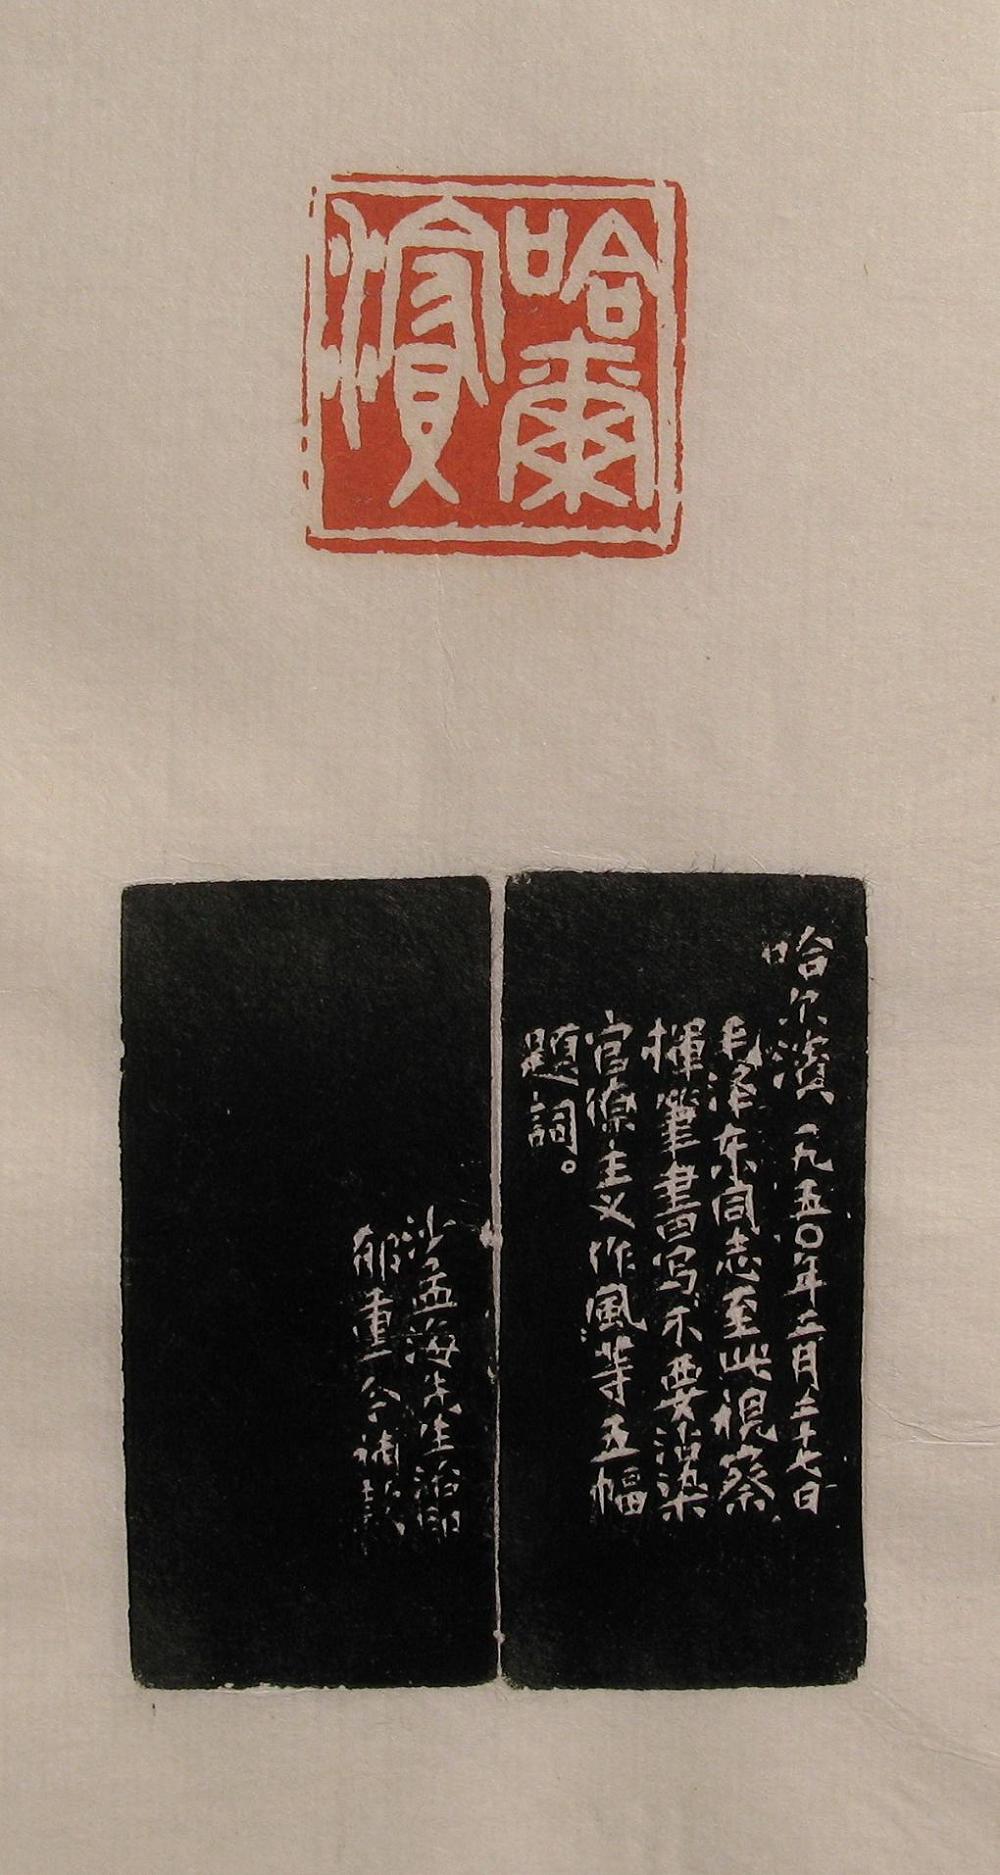 哈爾
濱
哈尔濱一九五〇年二月二十七日
毛泽东同志至此視察
揮筆書写不要沾染
官僚主义作風等五幅
題詞。
沙孟海先生治印
郁重今補款